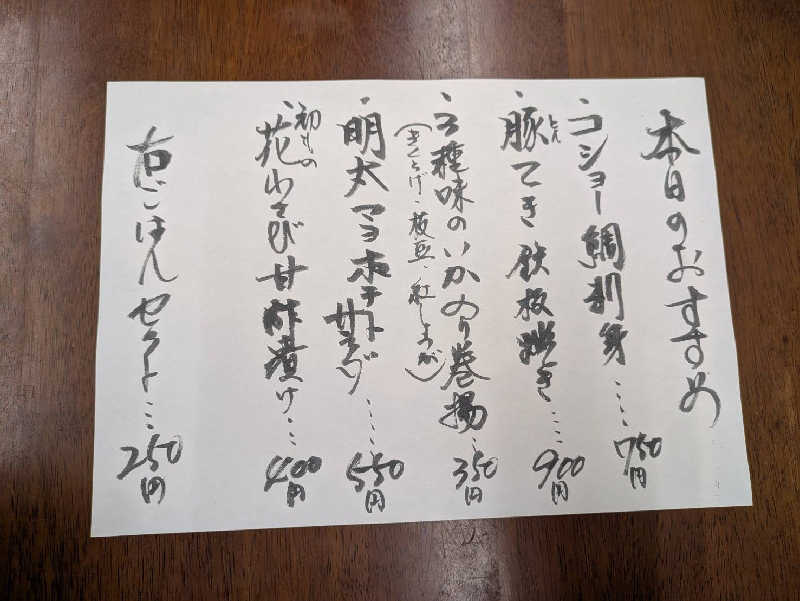 本日のおすすめ
・コショー鯛刺身‥‥750円
・豚てき鉄板焼き‥‥900円
とん
・3種味のいかのり巻揚‥350円
(きくらげ、枝豆、紅しょうが)
・明太マヨポテトサラダ‥‥550円
・初もの
花わさび甘酢漬け‥‥400円
右ごはんセット‥‥250円